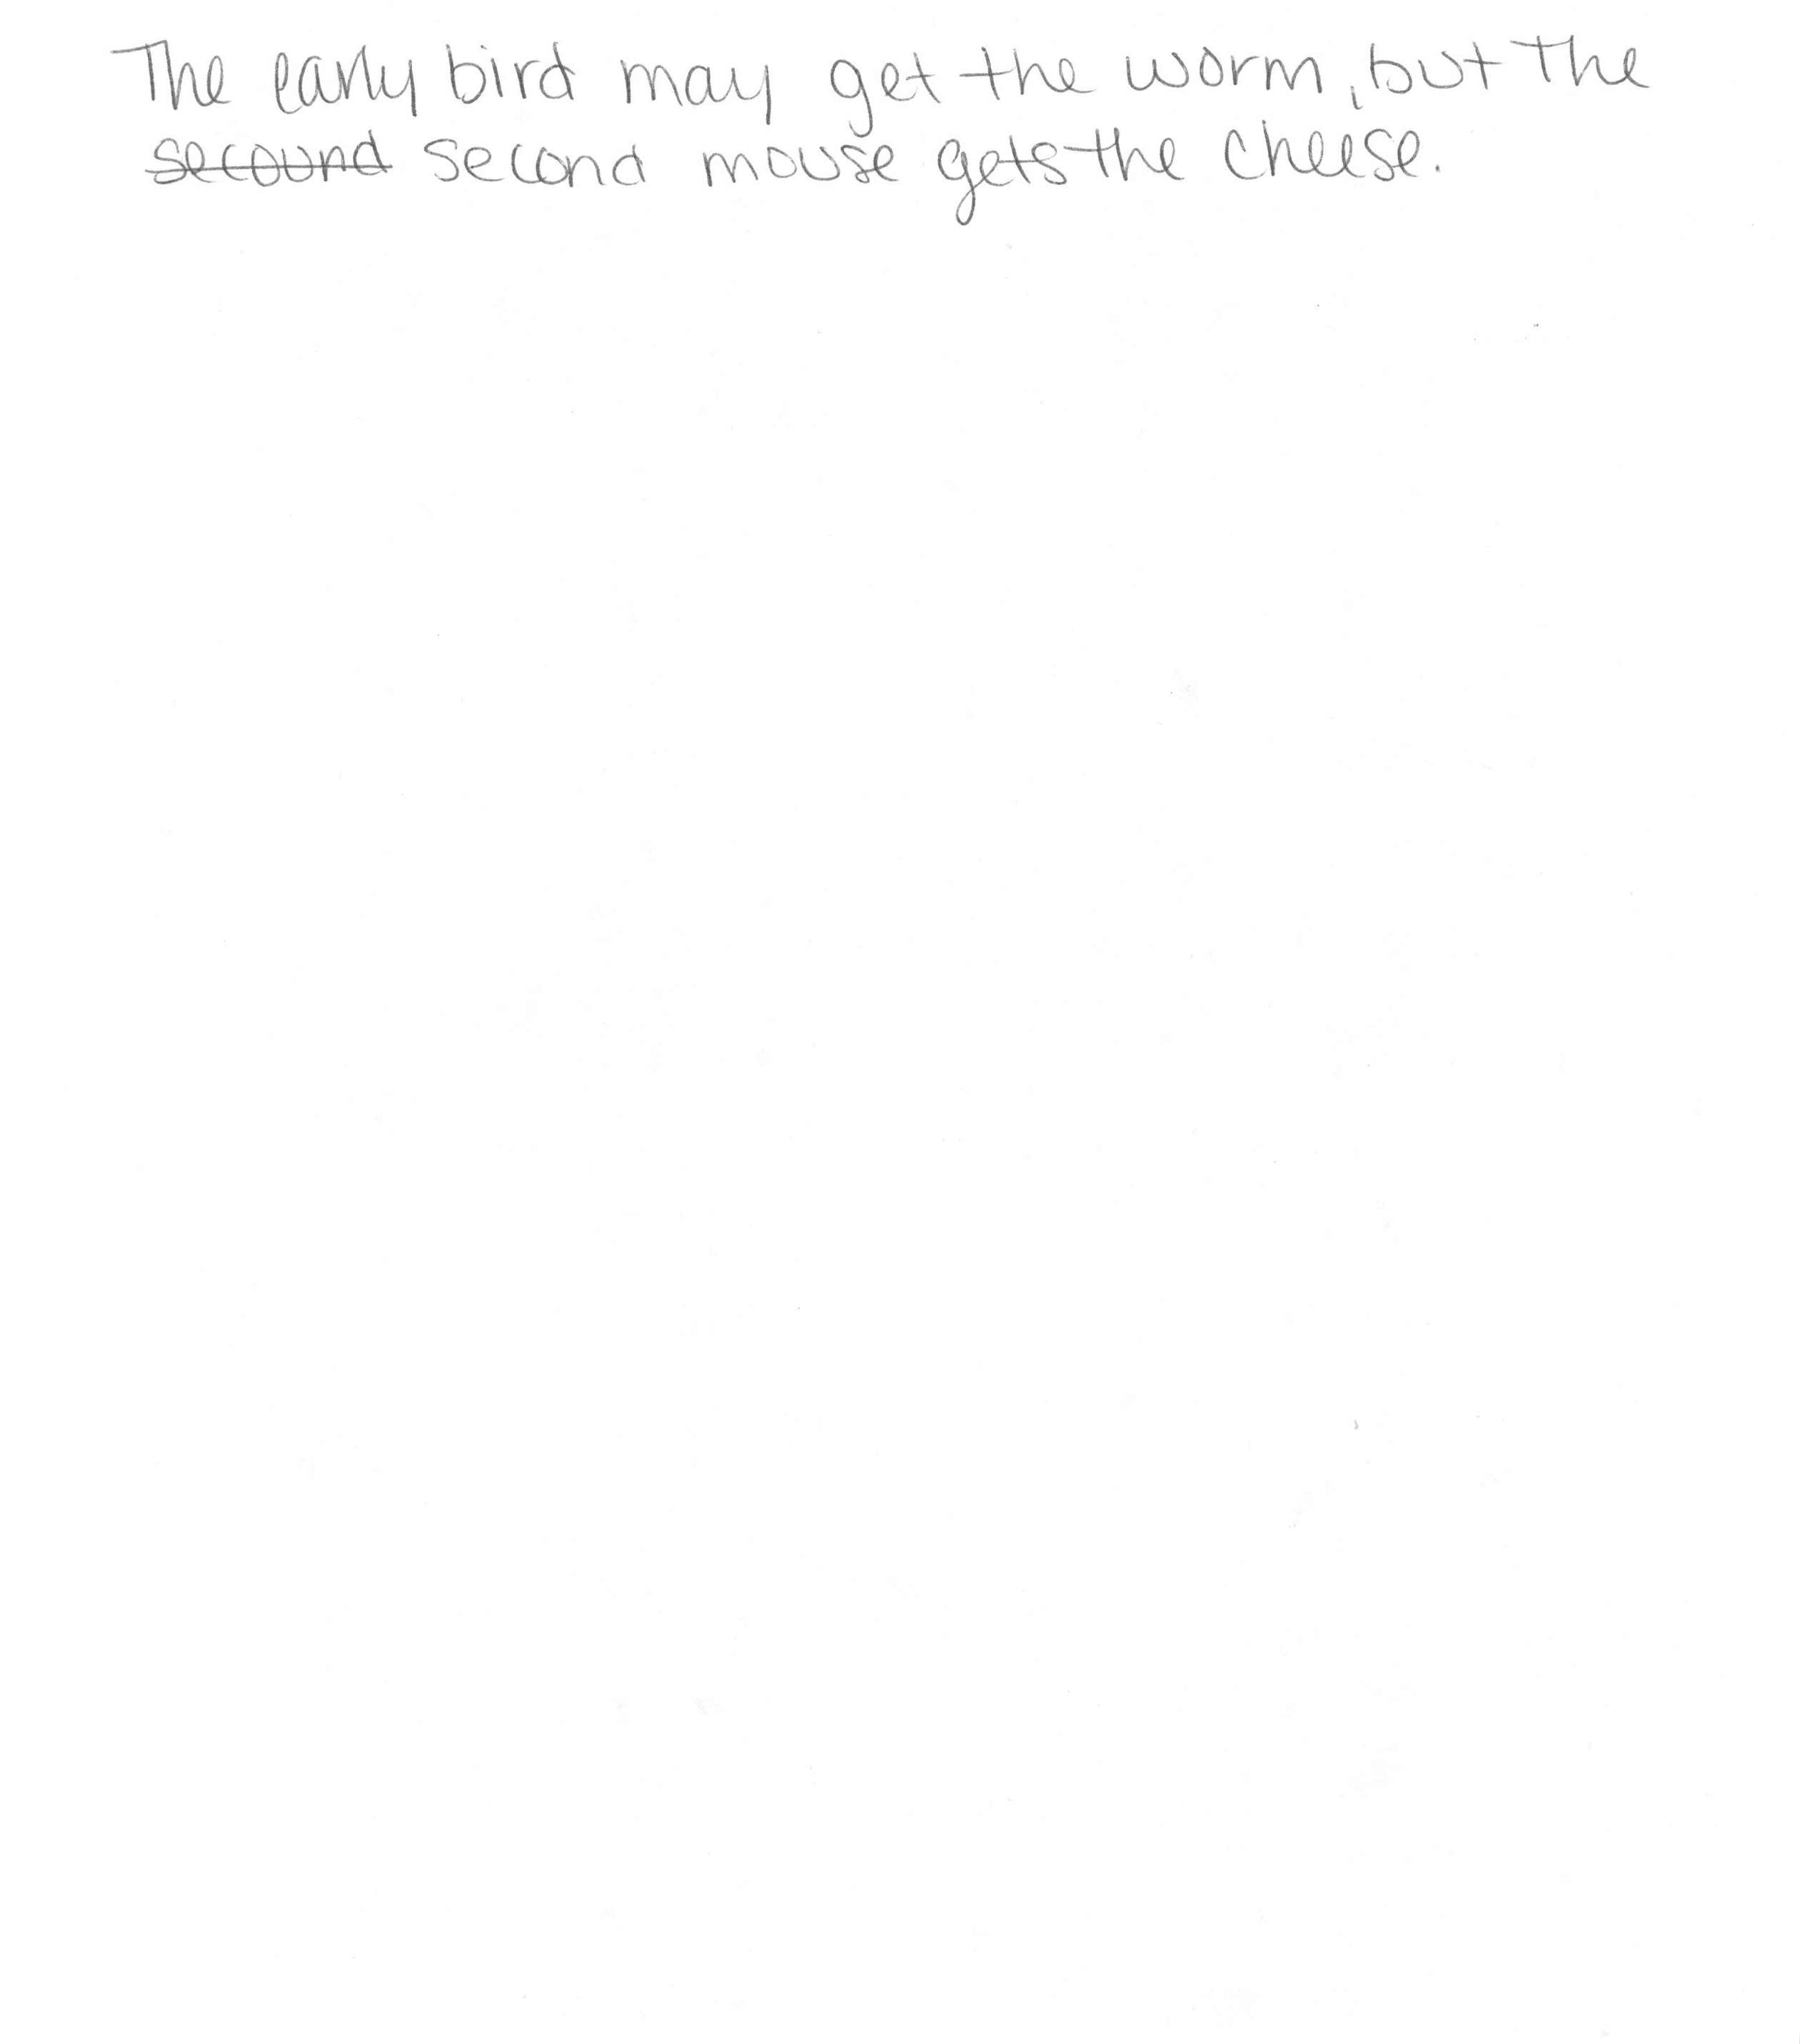 The early bird may get the worm, but the
secound second mouse gets the cheese.